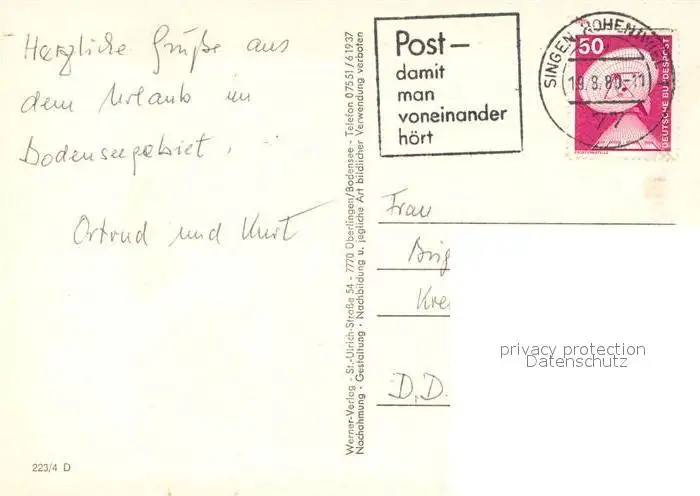 Herzliche Grüße aus
dem Urlaub im
Bodenseegebiet.
Ortrud und Kurt
Werner-Verlag - St.-Ulrich-Straße 54 - 7770 Überlingen/Bodensee - Telefon 07551/61937
Nachahmung · Gestaltung · Nachbildung u. jegliche Art bildlicher Verwendung verboten
Post –
damit
man
voneinander
hört
SINGEN HOHENTWIEL
19.8.80-11
50
DEUTSCHE BUNDESPOST
Frau
D.D.
privacy protection
Datenschutz
223/4 D